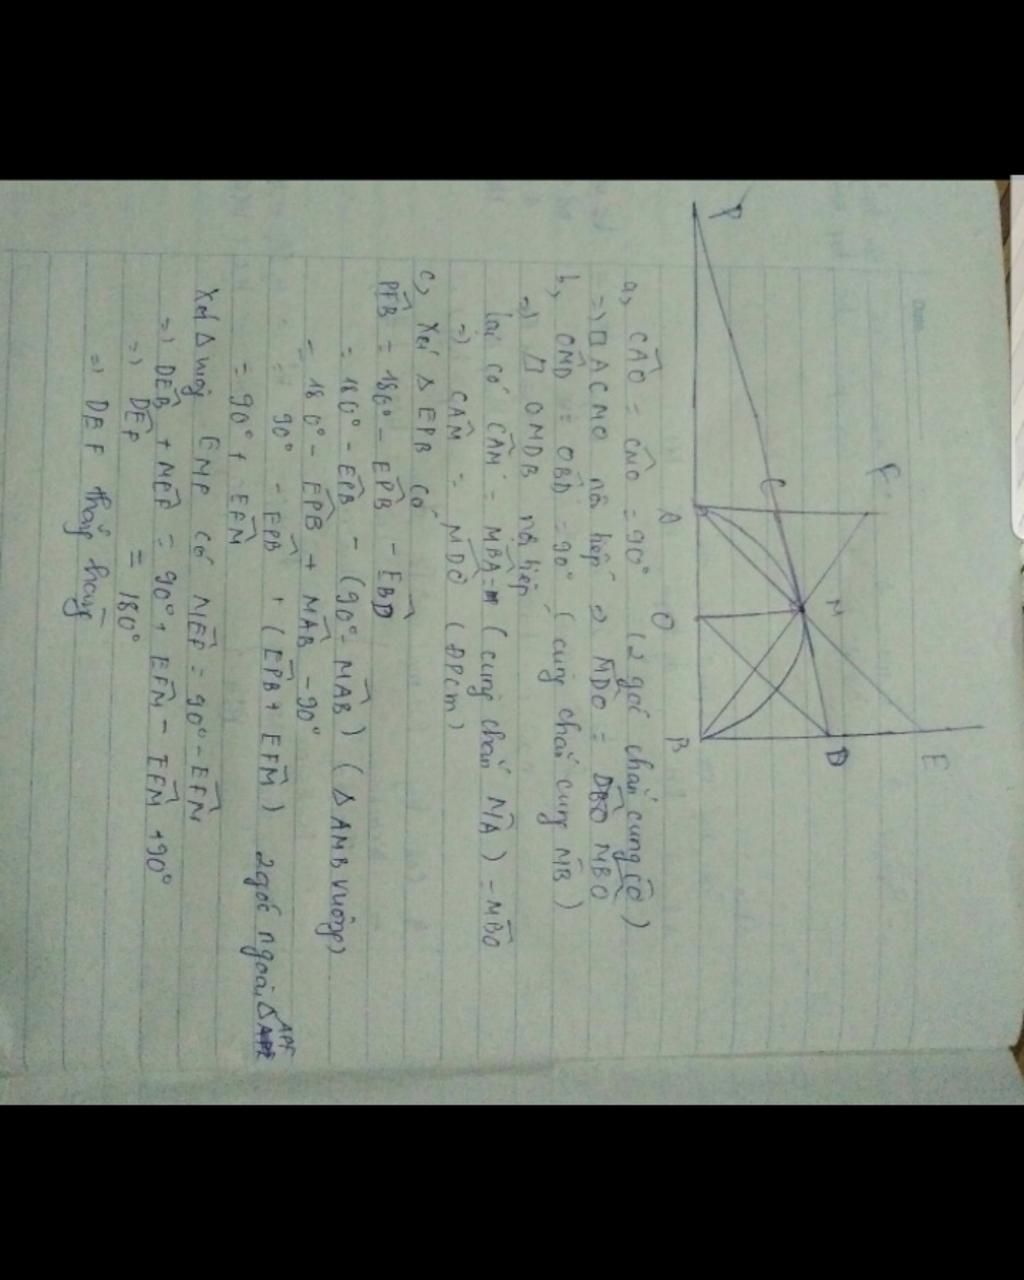 P
C
F
A
M
O
B
D
E
a, CÂO = CM̂O = 90° (2 góc chắn cung CO)
=> □ ACMO nội tiếp => MD̂O = MB̂O
b, OM̂D = OB̂D = 90° (cùng chắn cung MB)
=> □ OMDB nội tiếp
lại có CÂM = MB̂A = (cùng chắn MA) = MB̂O
=> CÂM = MD̂O (ĐPcm)
c, Xét Δ EPB có
PÊB = 180° - EP̂B - EB̂D
= 180° - EP̂B - (90° - MÂB) (Δ AMB vuông)
= 180° - EP̂B + MÂB - 90°
= 90° - EP̂B + (EP̂B + EF̂M) 2 góc ngoài Δ APF
= 90° + EF̂M
Xét Δ vuông EMF có MÊF = 90° - EF̂M
=> DÊB + MÊF = 90° + EF̂M - EF̂M + 90°
=> DÊF = 180°
=> DEF thẳng hàng